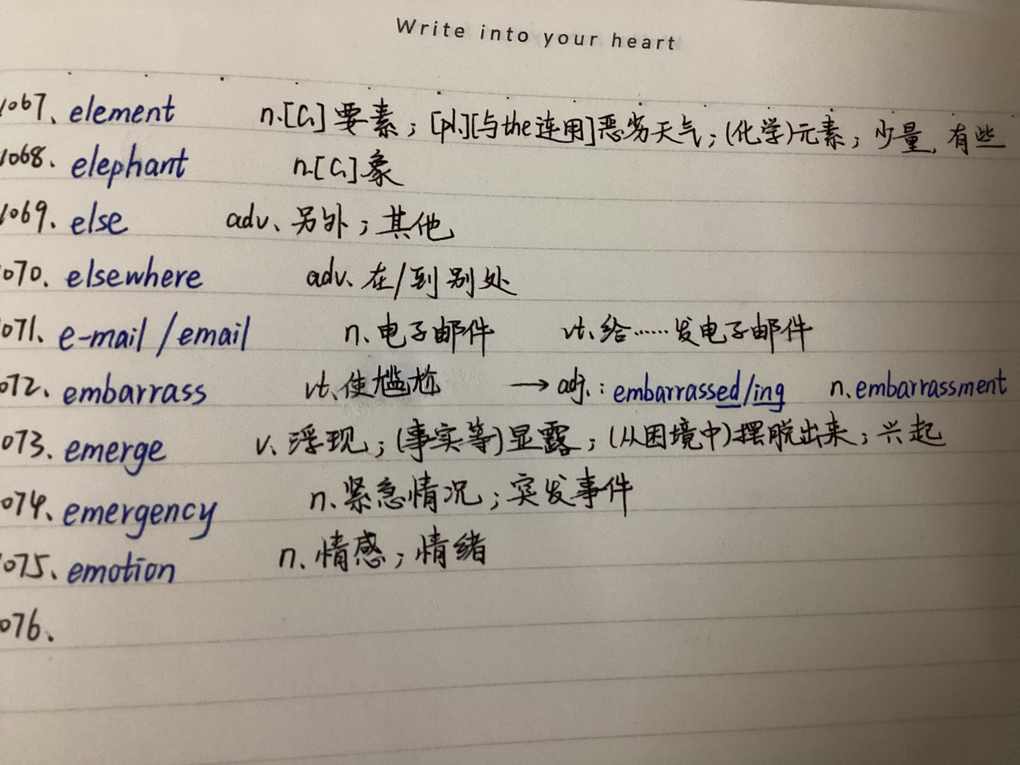 Write into your heart
1067、element n.[C] 要素；[pl.][与the连用]恶劣天气；(化学)元素；少量，有些
1068. elephant n.[C]象
1069. else adv、另外；其他
1070. elsewhere adv、在/到别处
071、e-mail / email n.电子邮件 vt.给……发电子邮件
072、embarrass vt.使尴尬 → adj.: embarrassed/ing n. embarrassment
073. emerge v. 浮现；(事实等)显露；(从困境中)摆脱出来；兴起
074. emergency n.紧急情况；突发事件
1075、emotion n.情感；情绪
076、